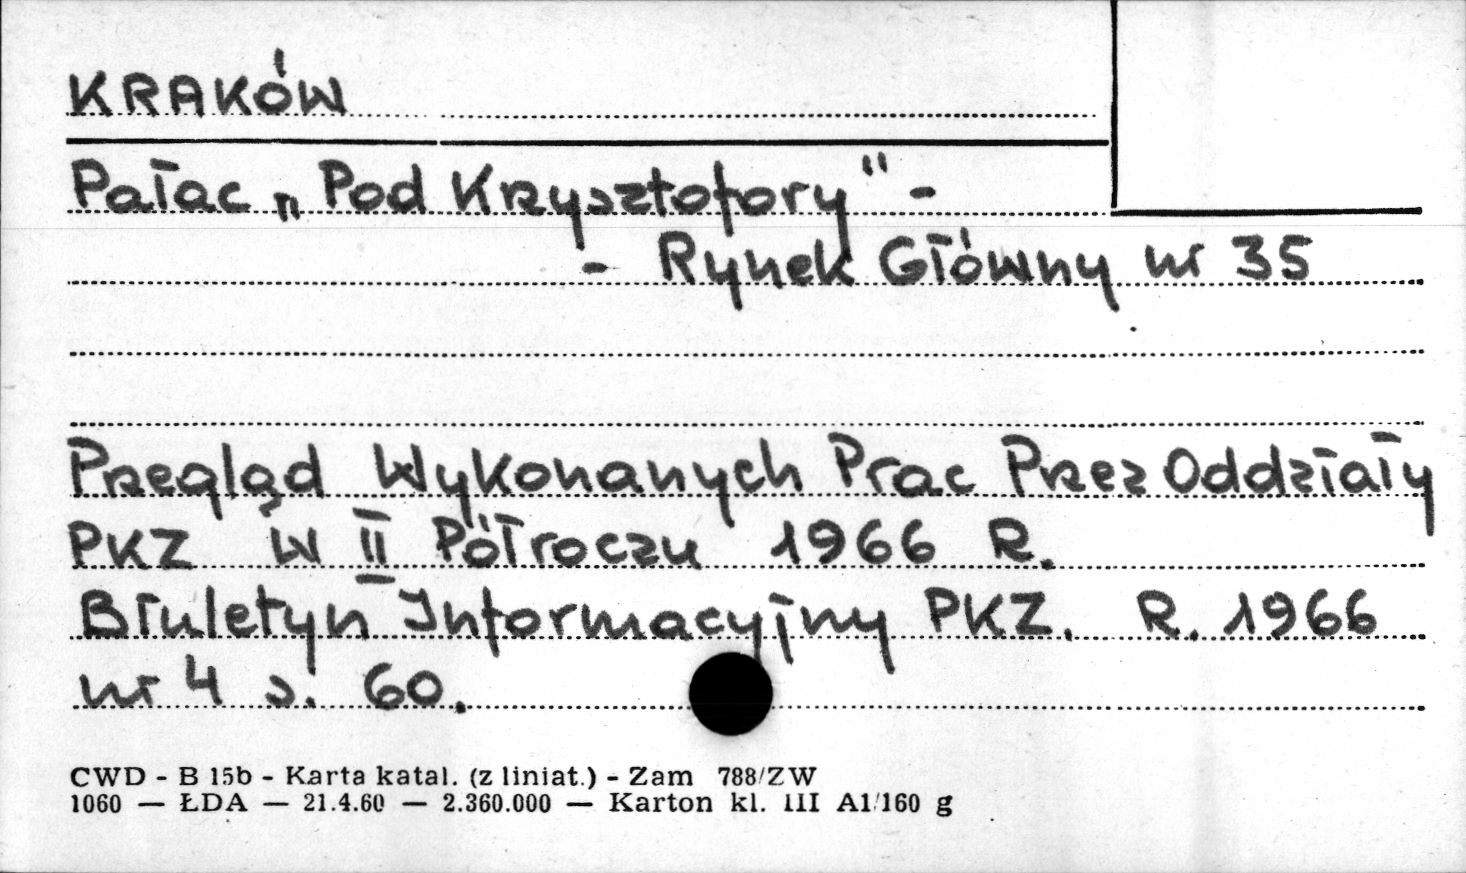 KRAKÓW
Pałac „Pod Krzysztofory" -
- Rynek Główny nr 35
Przegląd Wykonanych Prac Przez Oddziały
PKZ W II Półroczu 1966 R.
Biuletyn Informacyjny PKZ. R. 1966
nr 4 s. 60.
CWD - B 15b - Karta katal. (z liniat.) - Zam 788/ZW
1060 — ŁDA — 21.4.60 — 2.360.000 — Karton kl. III A1/160 g